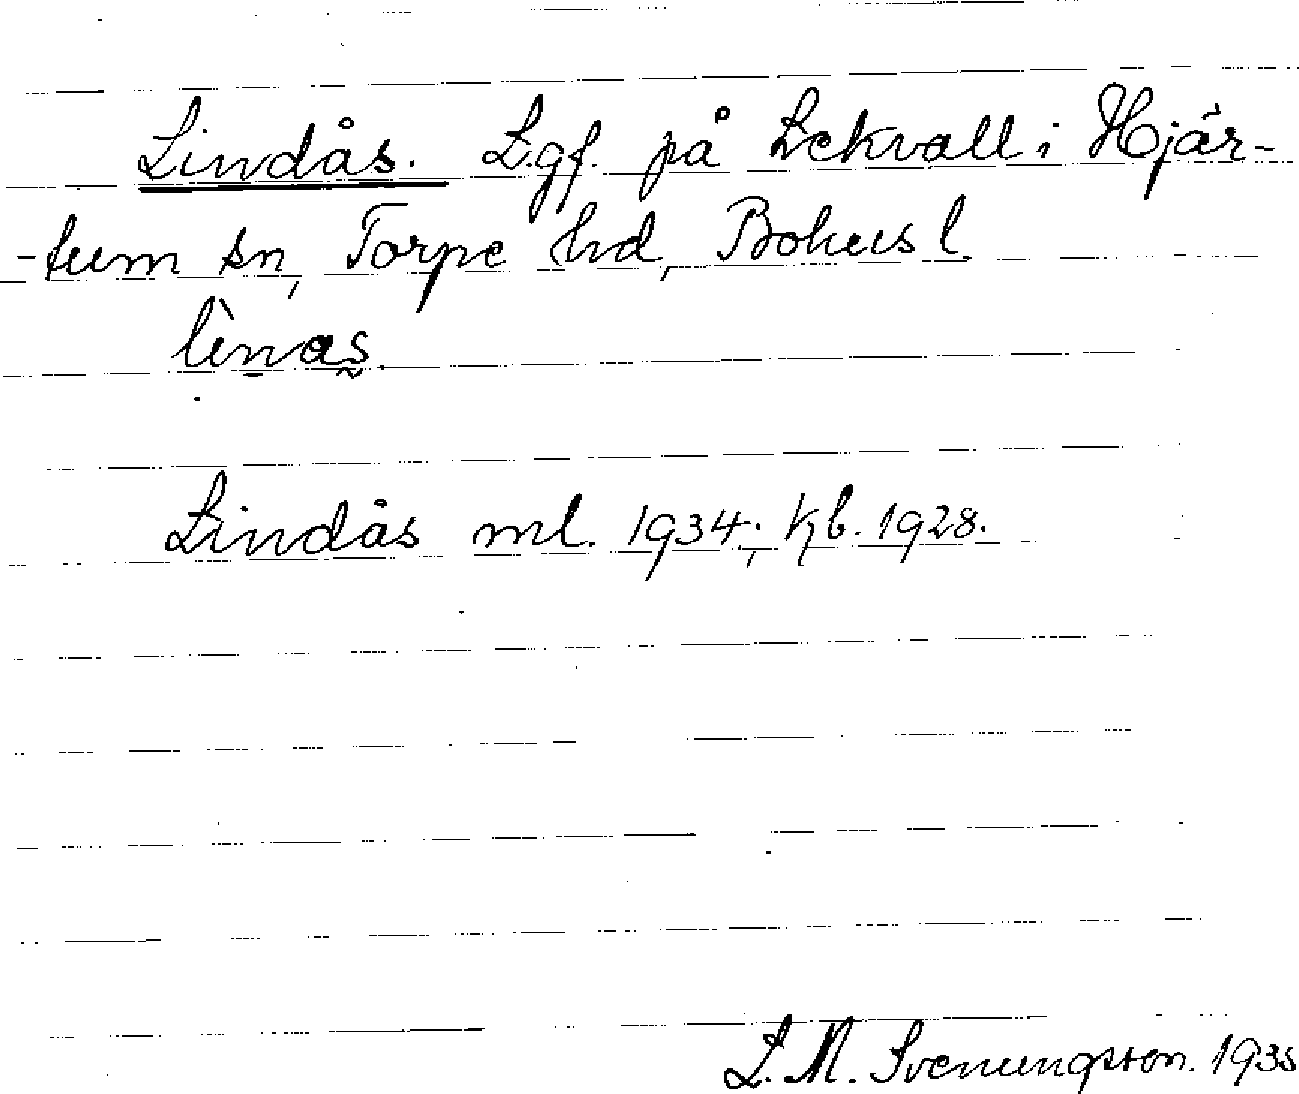 Lindås. L.gf. på Lekvall i Hjär-
-tum sn, Torpe hd, Bohusl.
lìnas.
Lindås ml. 1934; Kb. 1928.
L. M. Svenungsson. 1935